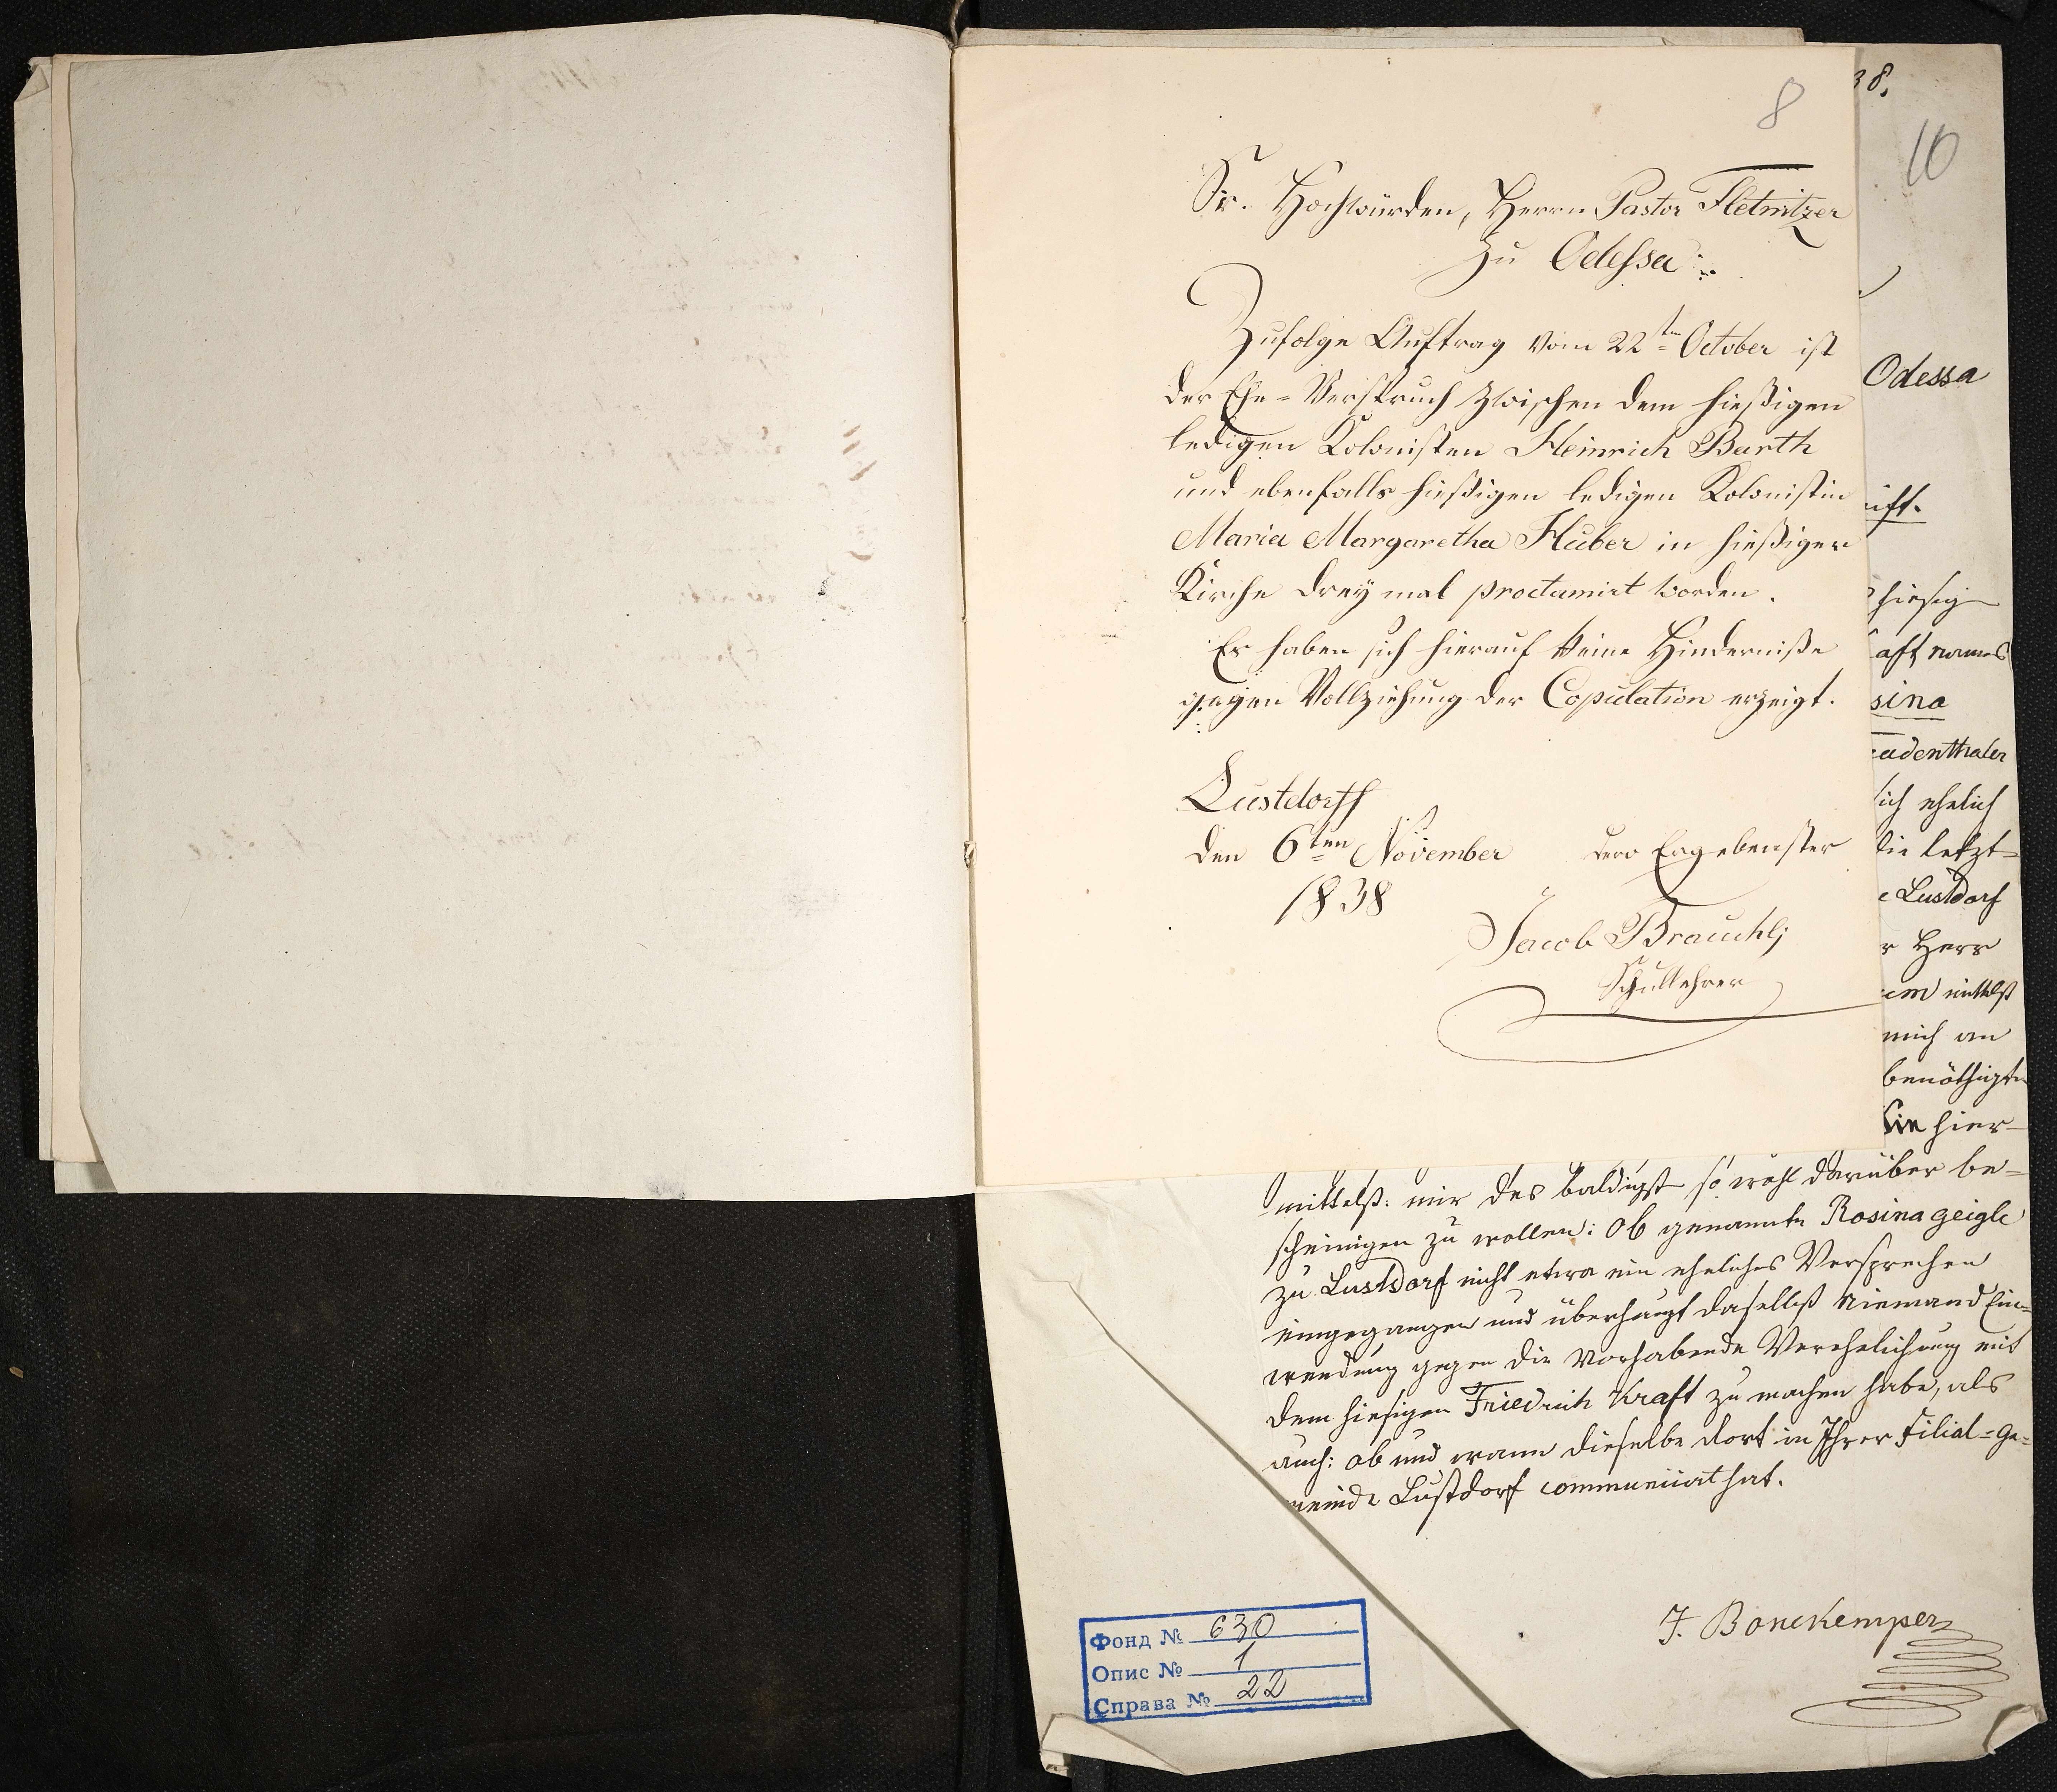 8
Sr. Hochwürden, Herrn Pastor Fletnitzer
zu Odessa
Zufolge Auftrag vom 22ten October ist
der Ehe-Verspruch zwischen dem hießigen
ledigen Kolonisten Heinrich Barth
und ebenfalls hießigen ledigen Kolonistin
Maria Margaretha Huber in hießiger
Kirche dreÿ mal proclamirt worden.
Es haben sich hierauf keine Hinderniße
gegen Vollziehung der Copulation erzeigt.
Lustdorff
den 6ten November
1838
dero Ergebenster
Jacob Brauchlj
Schullehrer
38.
10
Odessa
ift.
hiesig
aft, namens
sina
eudenthaler
sich ehelich
die letzt-
e Lustdorf
r Herr
em mittelst
mich an
benöthigte
Sie hier-
mittelst: mir des baldigst so wohl darüber be-
scheinigen zu wollen: Ob genannte Rosina geigle
zu Lustdorf nicht etwa ein eheliches Versprechen
eingegangen und überhaupt daselbst Niemand Ein-
wendung gegen die vorhabende Verehelichung mit
dem hiesigen Friedrich Kraft zu machen habe, als
auch: ob und wann dieselbe dort in Ihrer Filial-Ge-
meinde Lustdorf communicirt hat.
J. Bonekemper
Фонд № 630
Опис № 1
Справа № 22